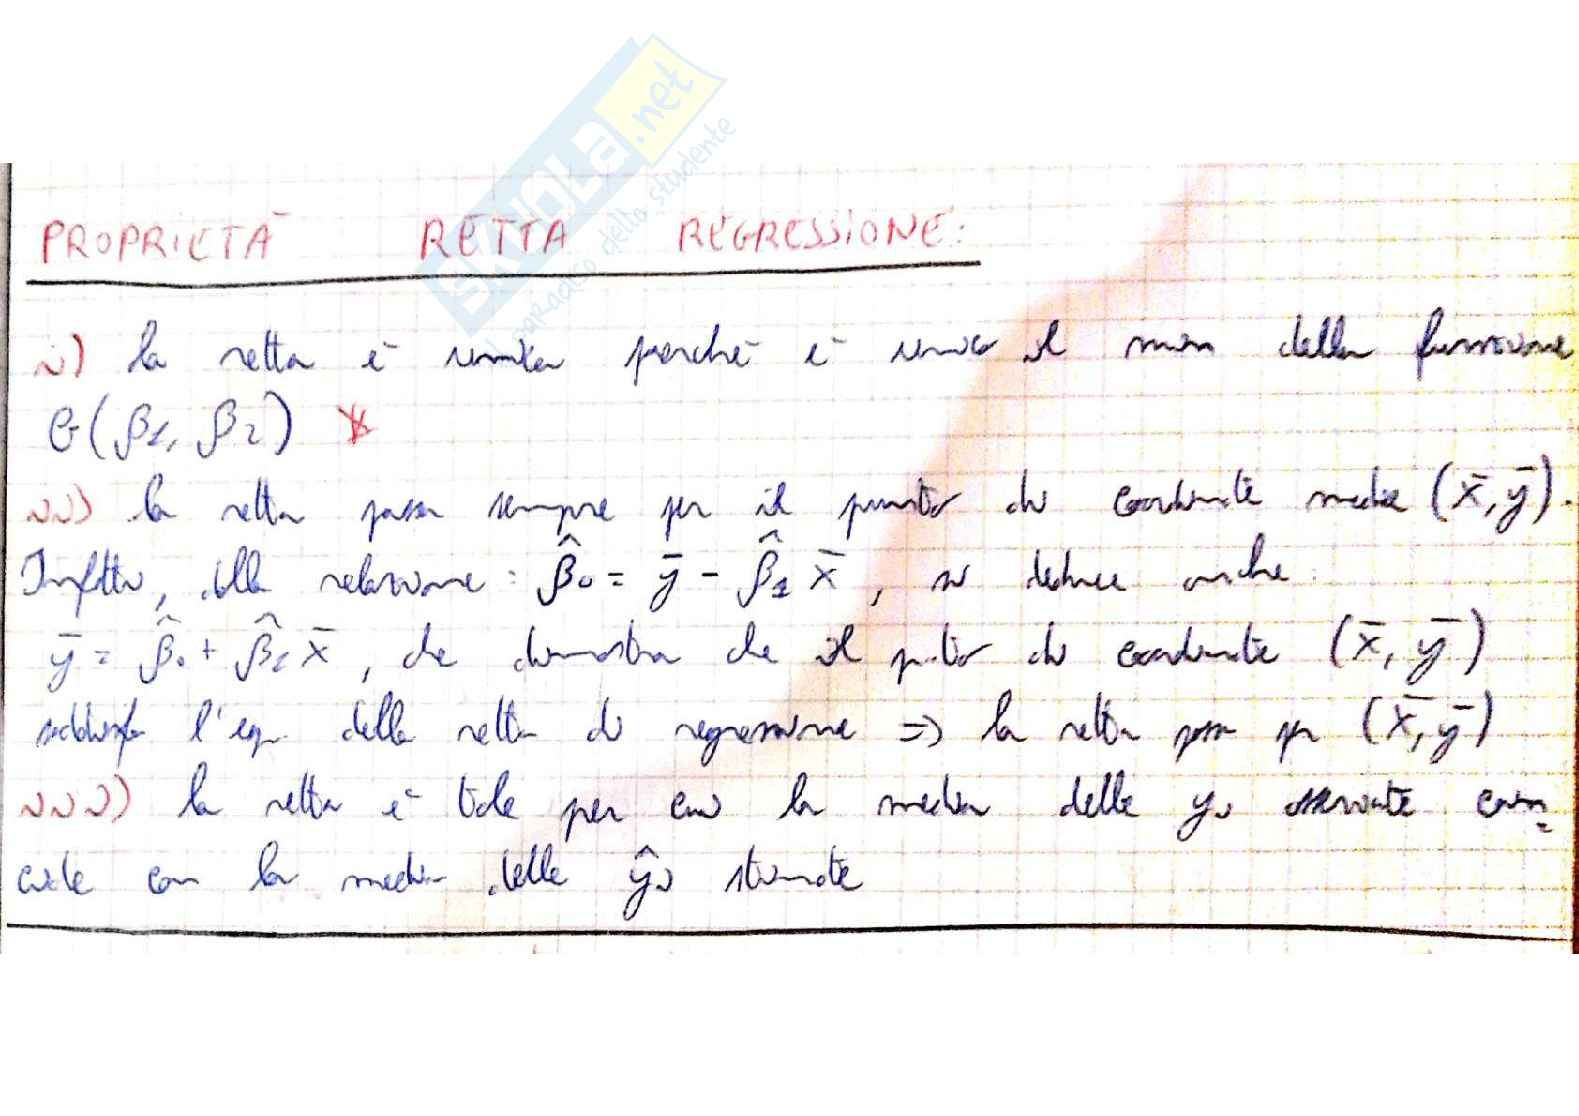 SKUOLA.net
il paradiso dello studente
PROPRIETÀ RETTA REGRESSIONE:
i) la retta è unica perché è unico il min della funzione
G(β1, β2) *
ii) la retta passa sempre per il punto di coordinate medie (x̄, ȳ).
Infatti, dalla relazione: β̂0 = ȳ - β̂1 x̄, si deduce anche:
ȳ = β̂0 + β̂1 x̄, che dimostra che il punto di coordinate (x̄, ȳ)
soddisfa l'eq. della retta di regressione => la retta passa per (x̄, ȳ)
iii) la retta è tale per cui la media delle yi osservate coin=
cide con la media delle ŷi stimate